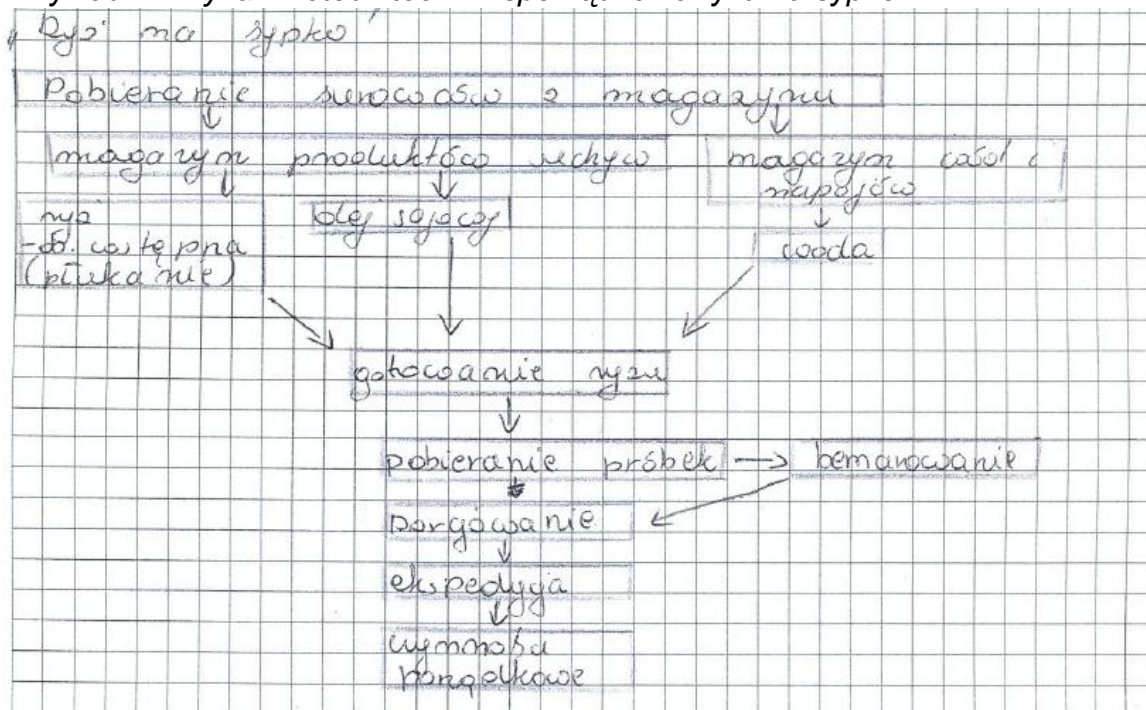 Ryż na sypko
Pobieranie surowców z magazynu
magazyn produktów suchych
magazyn wód i
napojów
ryż
-ob. wstępna
(płukanie)
olej sojowy
woda
gotowanie ryżu
pobieranie próbek → bemarowanie
porcjowanie
ekspedycja
czynności
porządkowe